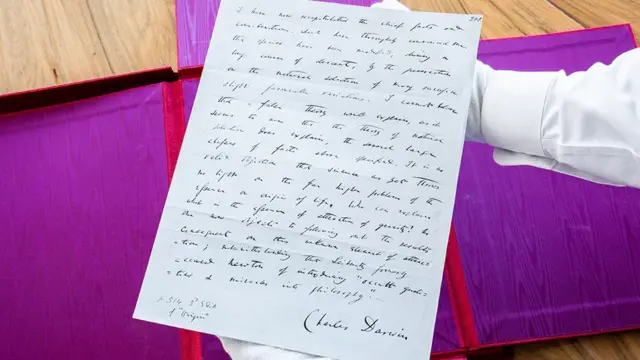 I have now recapitulated the chief facts and
considerations, which have thoroughly convinced me
that species have been modified, during a
long course of descent, by the preservation
or the natural selection of many successive
slight favourable variations. I cannot believe
that a false theory would explain, as it
seems to me that the theory of natural
selection does explain, the several large
classes of facts above specified. It is no
valid objection that science as yet throws
no light on the far higher problem of the
essence or origin of life. Who can explain
what is the essence of attraction of gravity? No
one now objects to following out the results
consequent on this unknown element of attrac
-tion; notwithstanding that Leibnitz formerly
accused Newton of introducing "occult quali-
-ties & miracles into philosophy".—
Charles Darwin
p. 514 3d
"Origin"